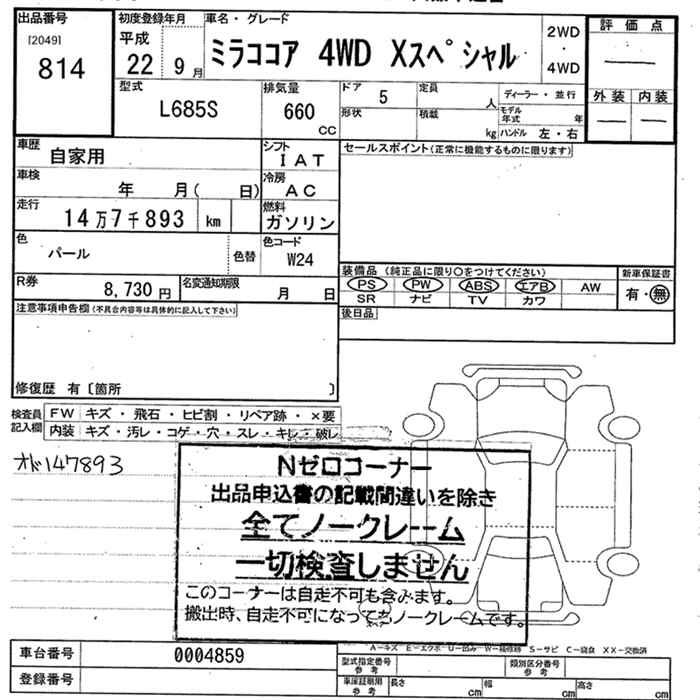 出品番号
[2049]
814
初度登録年月
平成
22 9月
車名・グレード
ミラココア 4WD Xスペシャル
2WD
・
4WD
評価点
外装 内装
型式
L685S
排気量
660
cc
ドア 5
形状
定員 人
積載 kg
ディーラー・並行
モデル年式 年
ハンドル 左・右
車歴
自家用
シフト
IAT
車検
年 月( 日)
冷房
AC
走行
14万7千893 km
燃料
ガソリン
色
パール
色替
色コード
W24
R券
8,730円
名変通知期限
月 日
セールスポイント(正常に機能するものに限ります)
装備品(純正品に限り○をつけてください)
PS PW ABS エアB AW
SR ナビ TV カワ
新車保証書
有・無
後日品
注意事項申告欄(不具合内容等は具体的に記入して下さい)
修復歴 有〔箇所 〕
検査員記入欄
FW キズ・飛石・ヒビ割・リペア跡・×要
内装 キズ・汚レ・コゲ・穴・スレ・キレ・破レ
オド147893
Nゼロコーナー
出品申込書の記載間違いを除き
全てノークレーム
一切検査しません
このコーナーは自走不可も含みます。
搬出時、自走不可になってもノークレームです。
スペア
A-キズ E-エクボ U-凹み W-補修跡 S-サビ C-腐食 XX-交換済
車台番号 0004859
登録番号
型式指定番号
参考
類別区分番号
参考
車庫証明用
参考
長さ cm 幅 cm 高さ cm